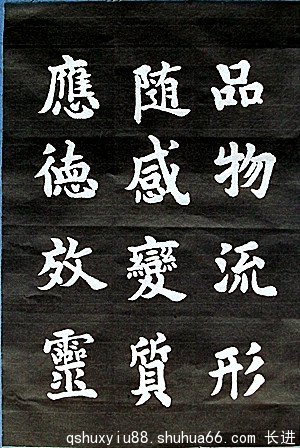 品物流形
随感變質
應德效靈
qshuxyiu88. shuhua66. com 长进